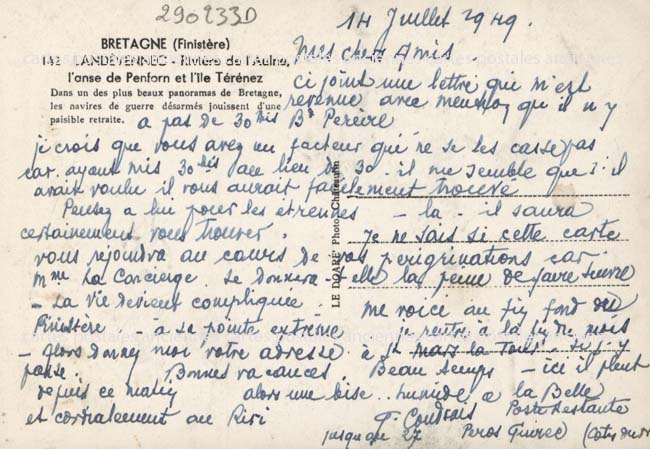 290933D
14 Juillet 1949.
BRETAGNE (Finistère)
142 - LANDEVENNEC - Rivière de l'Aulne,
l'anse de Penforn et l'Ile Térénez
Dans un des plus beaux panoramas de Bretagne,
les navires de guerre désarmés jouissent d'une
paisible retraite.
Mes chers Amis
ci joint une lettre qui m'est
revenue avec qu'il n'y
a pas de 30bis Bd Pereire
je crois que vous avez un facteur qui ne se les casse pas
car ayant mis 30bis au lieu de 30 . il me semble que s'il
avait voulu il vous aurait facilement trouvé
Pensez a lui pour les étrennes - la - il saura
certainement vous trouver. Je ne sais si cette carte
vous rejoindra au cours de vos peregrinations car
Mme La Concierge se donnera-t-elle la peine de faire suivre
- La vie devient compliquée - me voici au fin fond du
Finistère - a sa pointe extrême je rentre à la fin du mois
- alors donnez moi votre adresse à St Mars la Tour si j'y
passe. Bonnes vacances Beau temps - ici il pleut
depuis ce matin alors une bise.. humide a la Belle
et cordialement au Riri
G.
Poste Restante
jusqu'au 27 Peros Guirec (Cotes du
LE DOARÉ Photo. Châteaulin